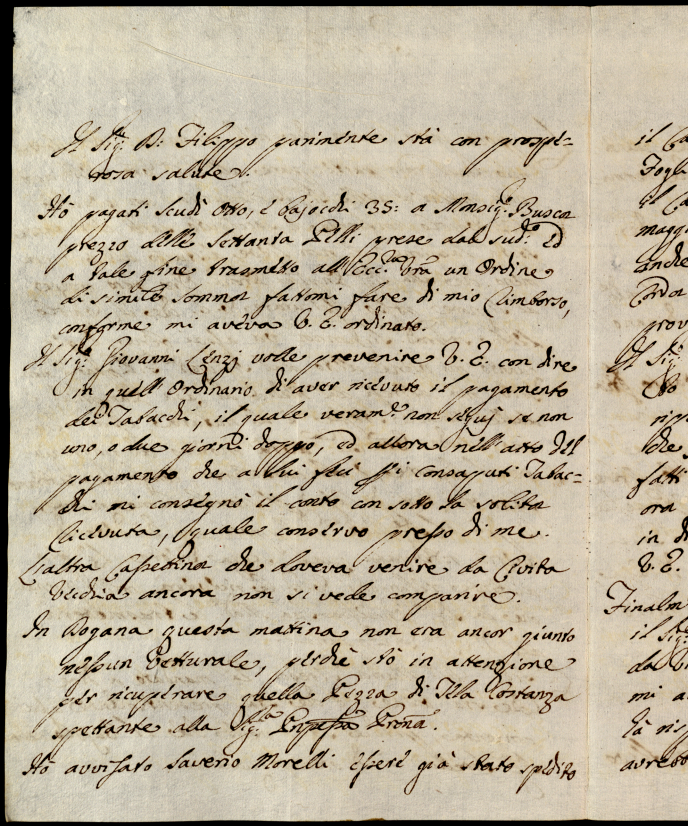 Il Sig.r D: Filippo parimente stà con prospe=
rosa salute.
Hò pagati Scudi Otto, è bajocchi 35: a Monsig.r Busca
prezzo delle Settanta Pelli prese dal sud.o Ed
a tale fine trasmetto all'Ecc.za Vrã un Ordine
di simile Somma fattomi fare di mio Rimborso,
conforme mi aveva V. E. ordinato.
Il Sig.r Giovanni Lenzj volle prevenire V. E. con dire
in quell'Ordinario di aver ricevuto il pagamento
de Tabacchi, il quale veram.e non seguj se non
uno, o due giorni doppo, ed allora nell'atto del
pagamento che a lui feci p i consaputi Tabac=
chi mi consegnò il conto con sotto la solita
Ricevuta, quale conservo presso di me.
L'altra Cassettina che doveva venire da Civita
Vecchia ancora non si vede comparire.
In Dogana questa mattina non era ancor giunto
nessun Vetturale, perchè stò in attenzione
per ricuperare quella Pezza di Tela Costanza
spettante alla Sig.ra Pnpessa Prõna.
Hò avvisato Saverio Morelli essere già stato spedito
il
Fogli
il
magg
anche
prov
Il Sig.r
che
fatti
ora
in
V. E.
Finalm
il Sig.r
da
mi a
avrebb